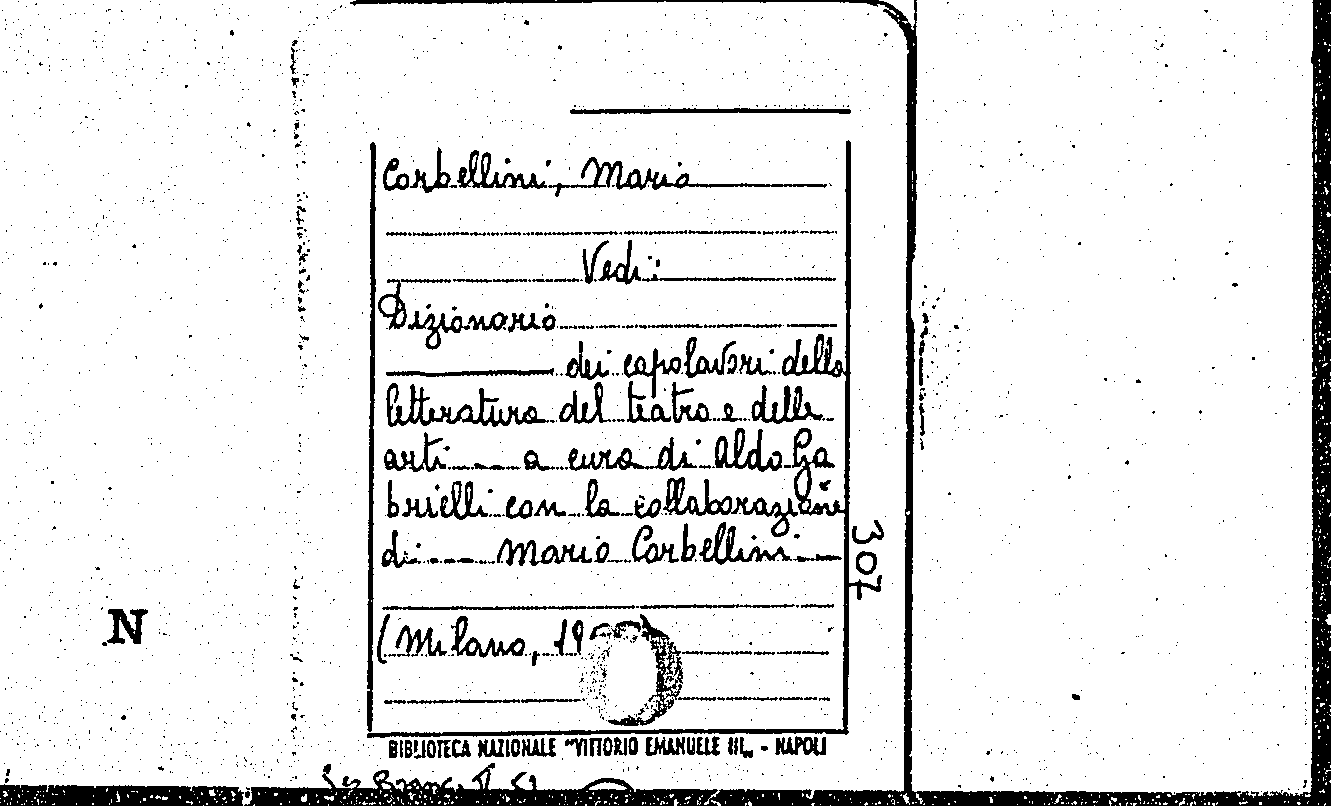 Corbellini, Mario
Vedi:
Dizionario
dei capolavori della
letteratura del teatro e delle
arti... a cura di Aldo Ga
brielli con la collaborazione
di... Mario Corbellini...
(Milano, 19
307
N
BIBLIOTECA NAZIONALE "VITTORIO EMANUELE III„ - NAPOLI